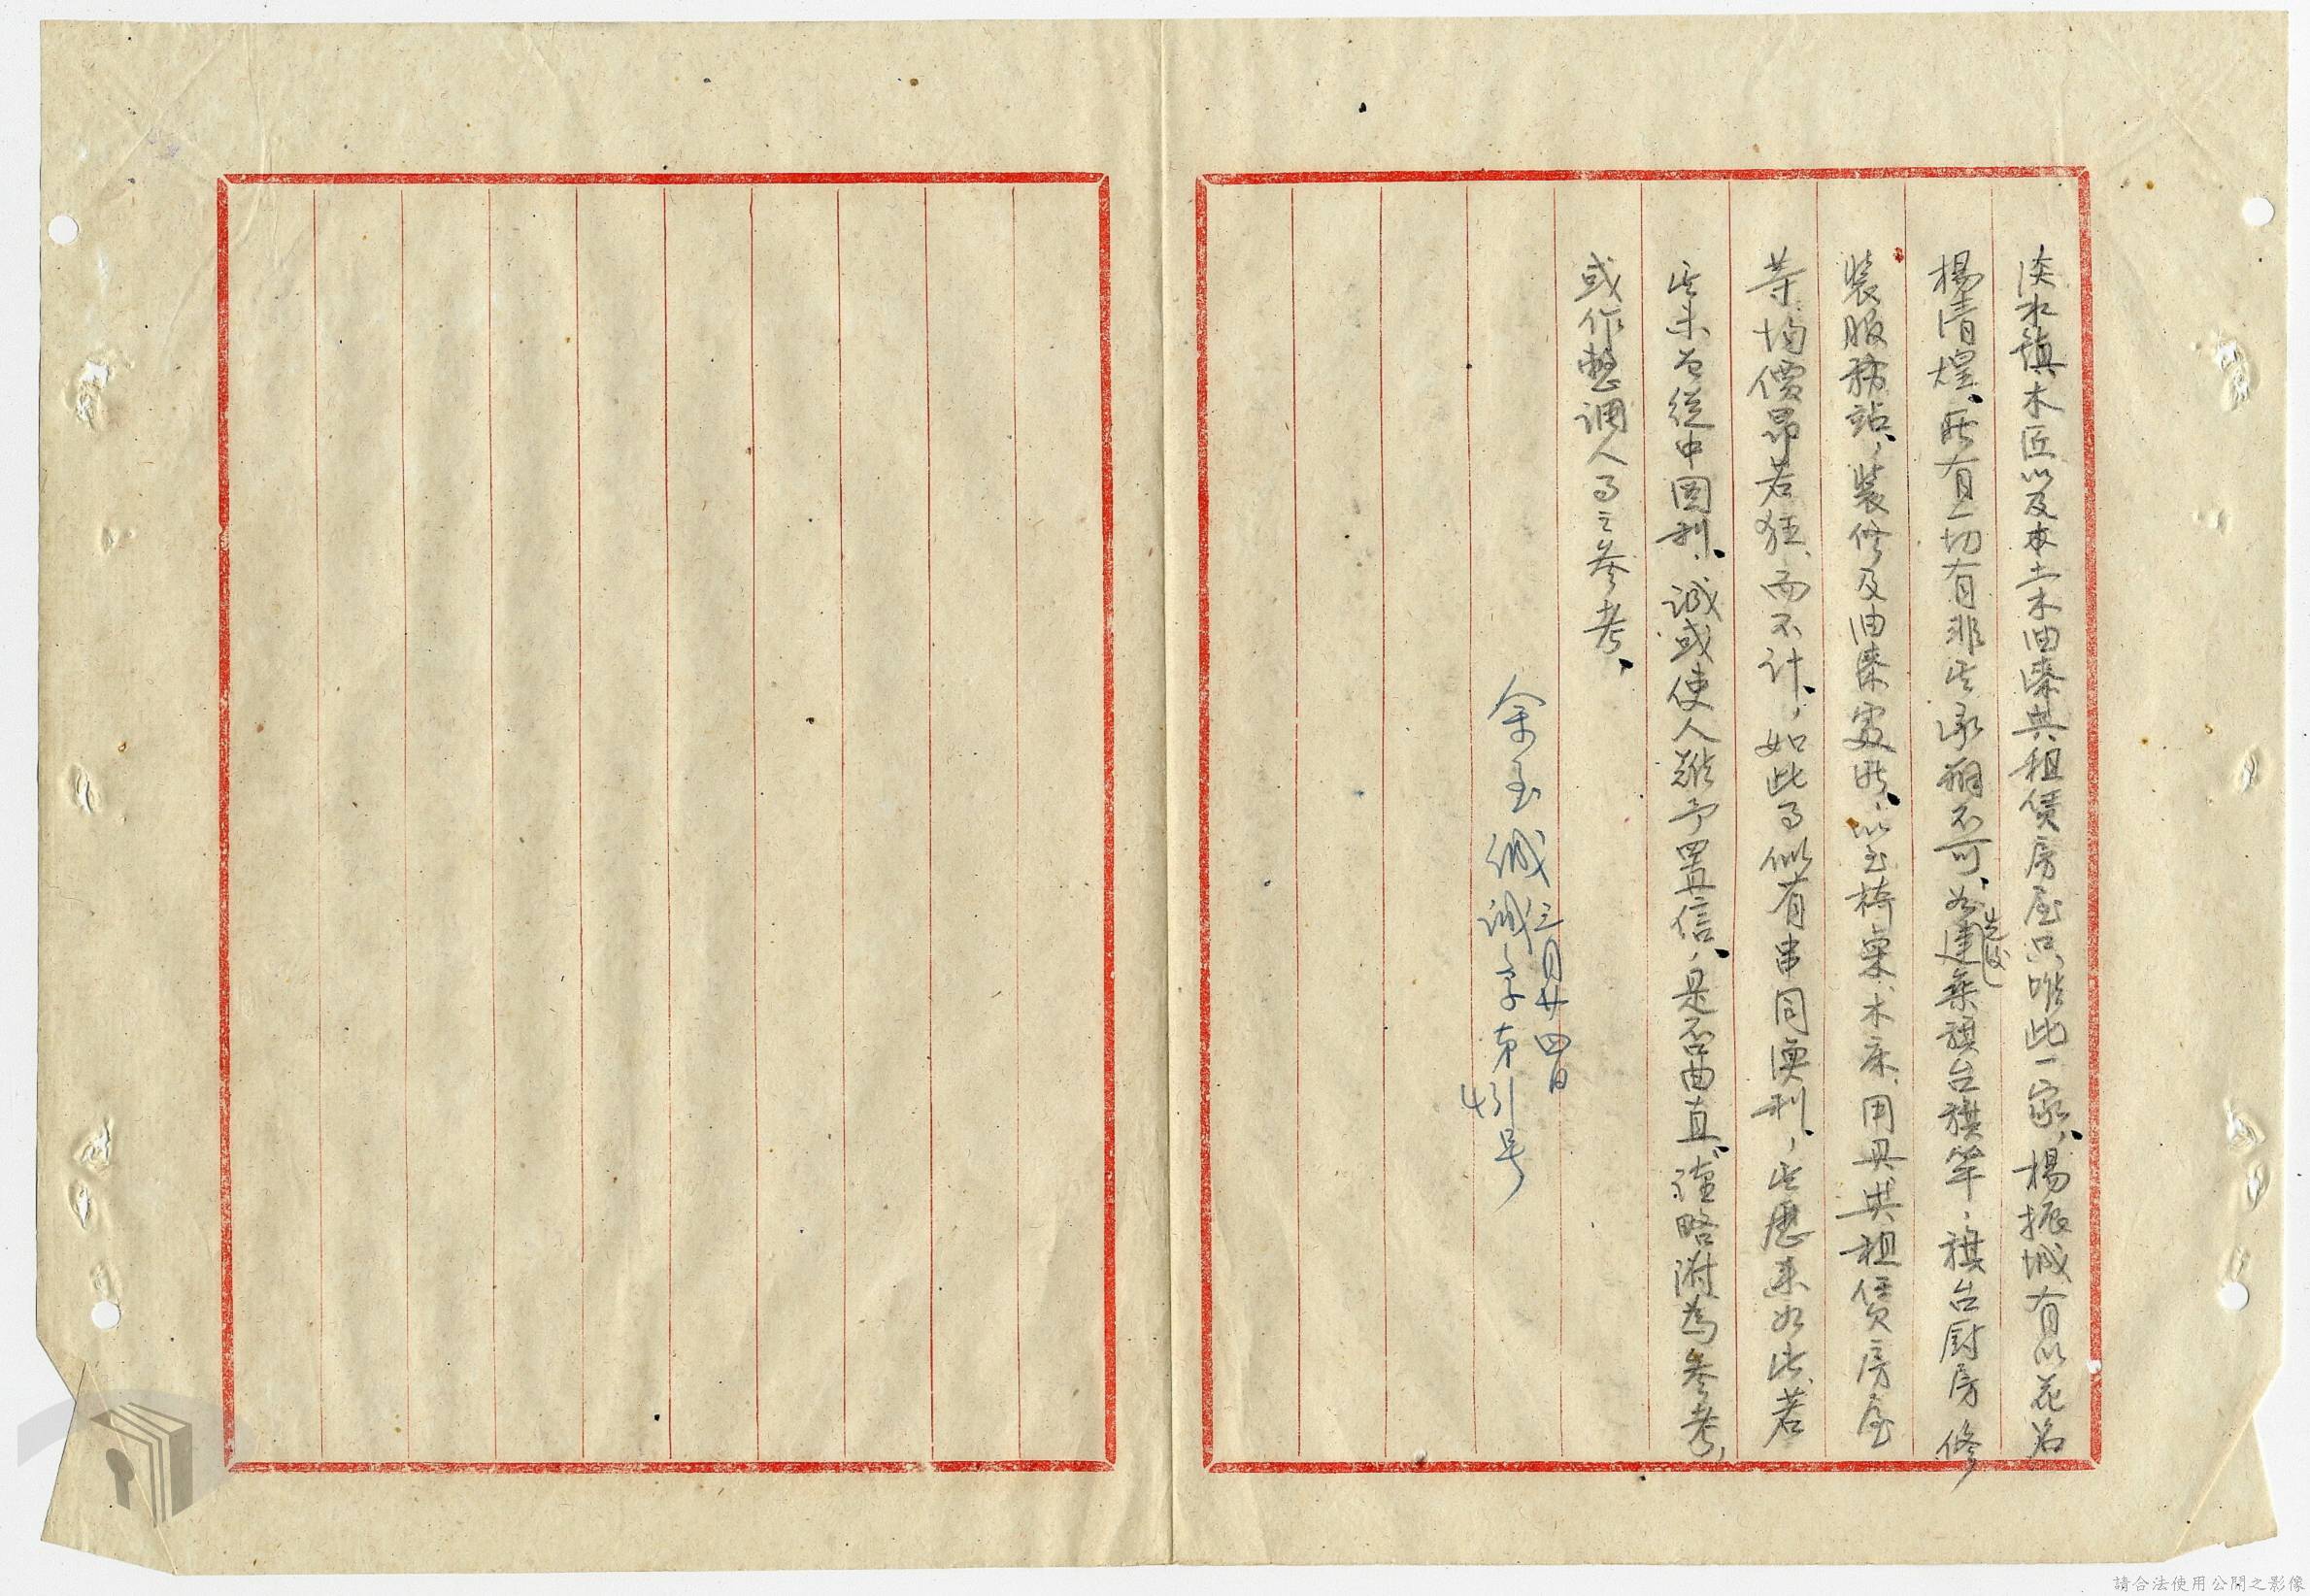 淡水鎮木匠以及本土木油漆與租賃房屋只唯此一家、楊振城有以花名
楊清煌、所有一切有非此承辦不可、為建築旗台旗竿、旗台廚房修
裝服務站、裝修及油漆處所、以至椅桌、木床、用具、與租賃房屋
等、均價昂若狂、而不計、如此事似有串同漁利、此歷來如此、若
此未為從中圖利、誠或使人難予置信、是否曲直、謹略附為參考、
或作整調人事之參考、
余至誠 三月廿四日
調字第 号
請合法使用公開之影像